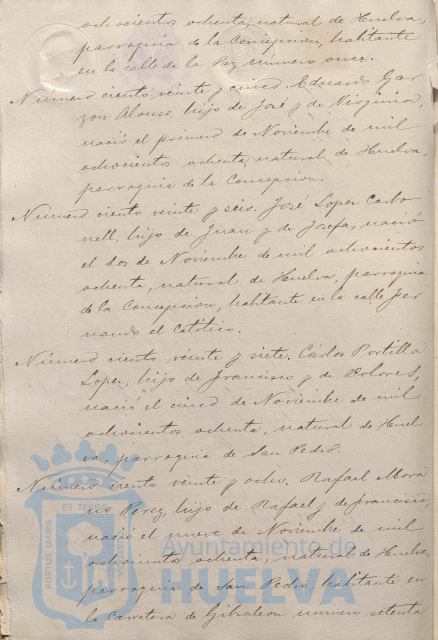 ochocientos ochenta, natural de Huelva,
parroquia de la Concepcion, habitante
en la calle de la Paz numero once.
Número ciento veinte y cinco. Eduardo Gar
zon Alonso, hijo de José y de Virginia,
nació el primero de Noviembre de mil
ochocientos ochenta, natural de Huelva,
parroquia de la Concepcion.
Número ciento veinte y seis. José Lopez Carbo
nell, hijo de Juan y de Josefa, nació
el dos de Noviembre de mil ochocientos
ochenta, natural de Huelva, parroquia
de la Concepcion, habitante en la calle Fer
nando el Católico.
Número ciento veinte y siete. Cárlos Portilla
Lopez, hijo de Francisco y de Dolores,
nació el cinco de Noviembre de mil
ochocientos ochenta, natural de Huel
va, parroquia de San Pedro.
Número ciento veinte y ocho. Rafael Mora
Perez, hijo de Rafael y de Francisca,
nació el nueve de Noviembre de mil
ochocientos ochenta, natural de Huelva,
parroquia de San Pedro, habitante en
la Carretera de Gibraleon numero setenta
PORTUS MARIS ET TERRAE CUSTODIA
Ayuntamiento de
HUELVA